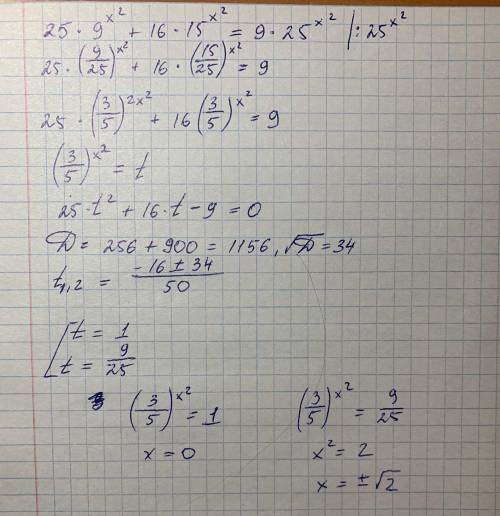 25 · 9^x² + 16 · 15^x² = 9 · 25^x² |: 25^x²
25 · (9/25)^x² + 16 · (15/25)^x² = 9
25 · (3/5)^2x² + 16 (3/5)^x² = 9
(3/5)^x² = t
25 · t² + 16 · t - 9 = 0
D = 256 + 900 = 1156, √D = 34
t₁,₂ = (-16 ± 34)/50
[ t = 1
t = 9/25
(3/5)^x² = 1 (3/5)^x² = 9/25
x = 0 x² = 2
x = ±√2